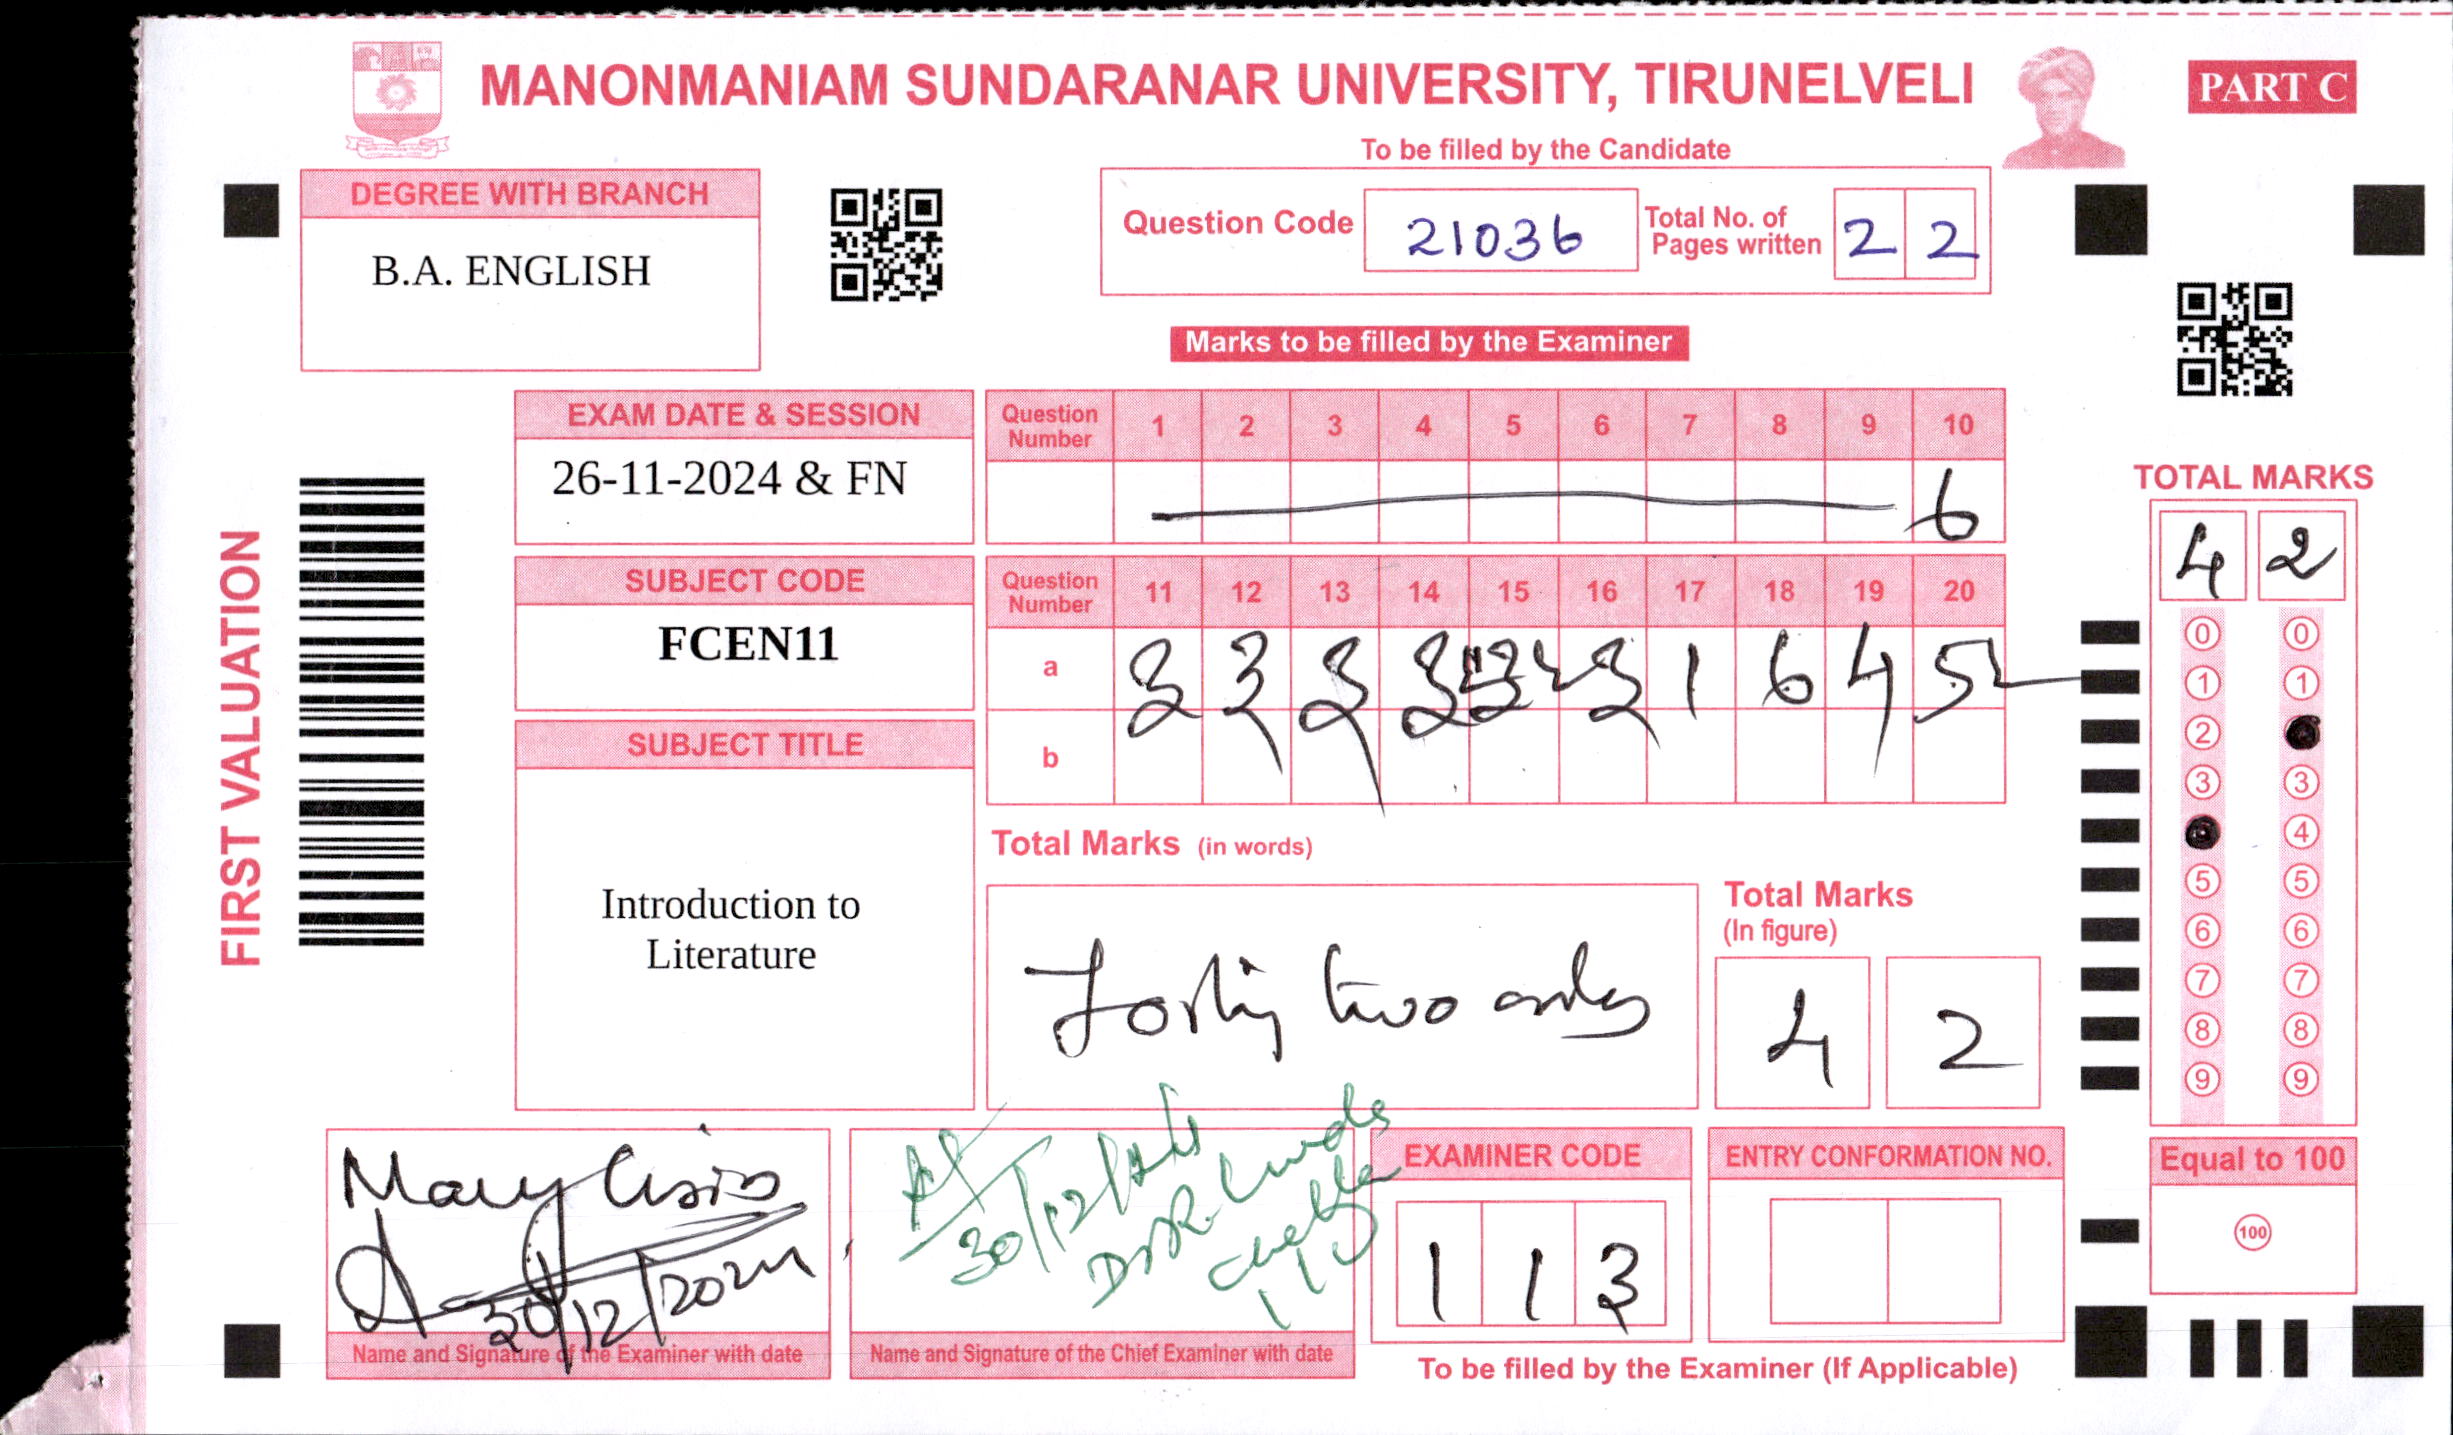 MANONMANIAM SUNDARANAR UNIVERSITY, TIRUNELVELI
PART C
To be filled by the Candidate
DEGREE WITH BRANCH
B.A. ENGLISH
Question Code 21036 Total No. of Pages written 2 2
Marks to be filled by the Examiner
FIRST VALUATION
EXAM DATE & SESSION
26-11-2024 & FN
SUBJECT CODE
FCEN11
SUBJECT TITLE
Introduction to
Literature
Question Number 1 2 3 4 5 6 7 8 9 10
6
Question Number 11 12 13 14 15 16 17 18 19 20
a 3 3 3 3 3 1 6 4 5
b
Total Marks (in words)
Forty two only
Total Marks
(In figure)
4 2
TOTAL MARKS
4 2
0 0
1 1
2
3 3
4
5 5
6 6
7 7
8 8
9 9
Equal to 100
100
Mary
30/12/2024
Name and Signature of the Examiner with date
30/12/
Name and Signature of the Chief Examiner with date
EXAMINER CODE
1 1 3
ENTRY CONFORMATION NO.
To be filled by the Examiner (If Applicable)